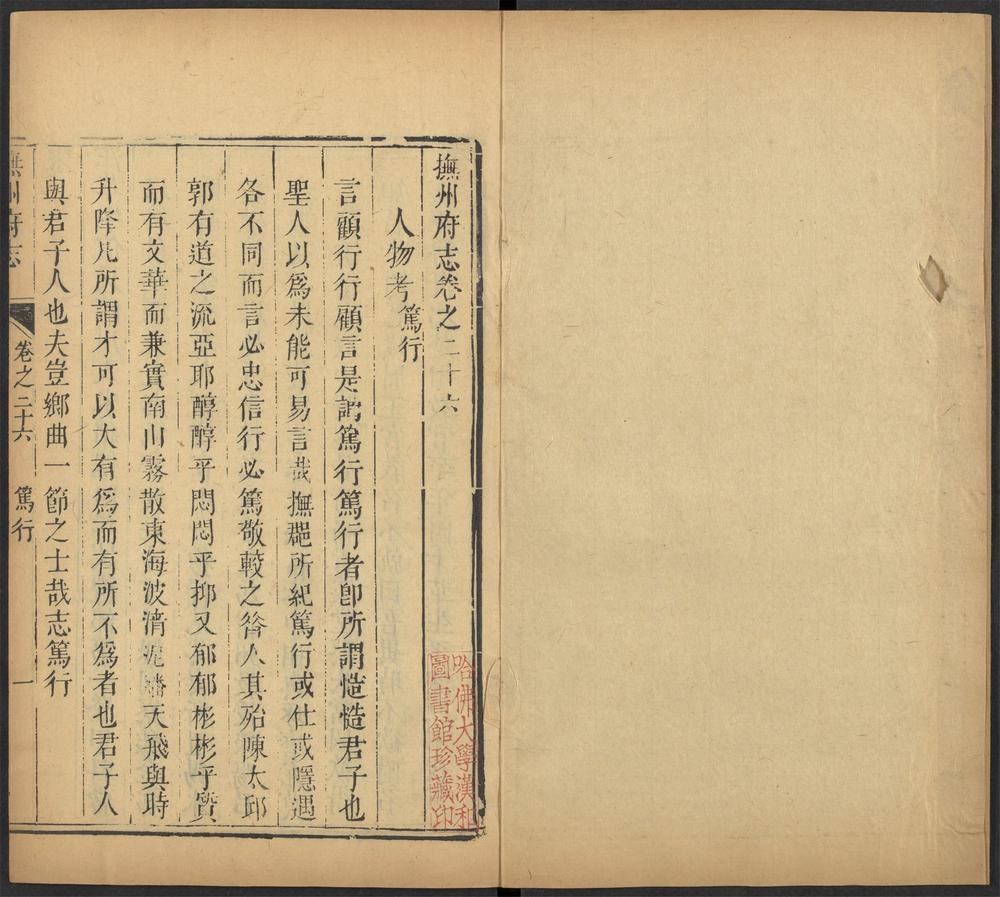 撫州府志卷之二十六
人物考 篤行
言顧行行顧言是謂篤行篤行者卽所謂慥慥君子也
聖人以爲未能可易言哉撫郡所紀篤行或仕或隱遇
各不同而言必忠信行必篤敬較之昝人其殆陳太邱
郭有道之流亞耶醇醇乎悶悶乎抑又郁郁彬彬乎質
而有文華而兼實南山霧散東海波淸泥蟠天飛與時
升降凡所謂才可以大有爲而有所不爲者也君子人
與君子人也夫豈鄉曲一節之士哉志篤行
撫州府志 卷之二十六 篤行 一
哈佛大學漢和
圖書館珍藏印